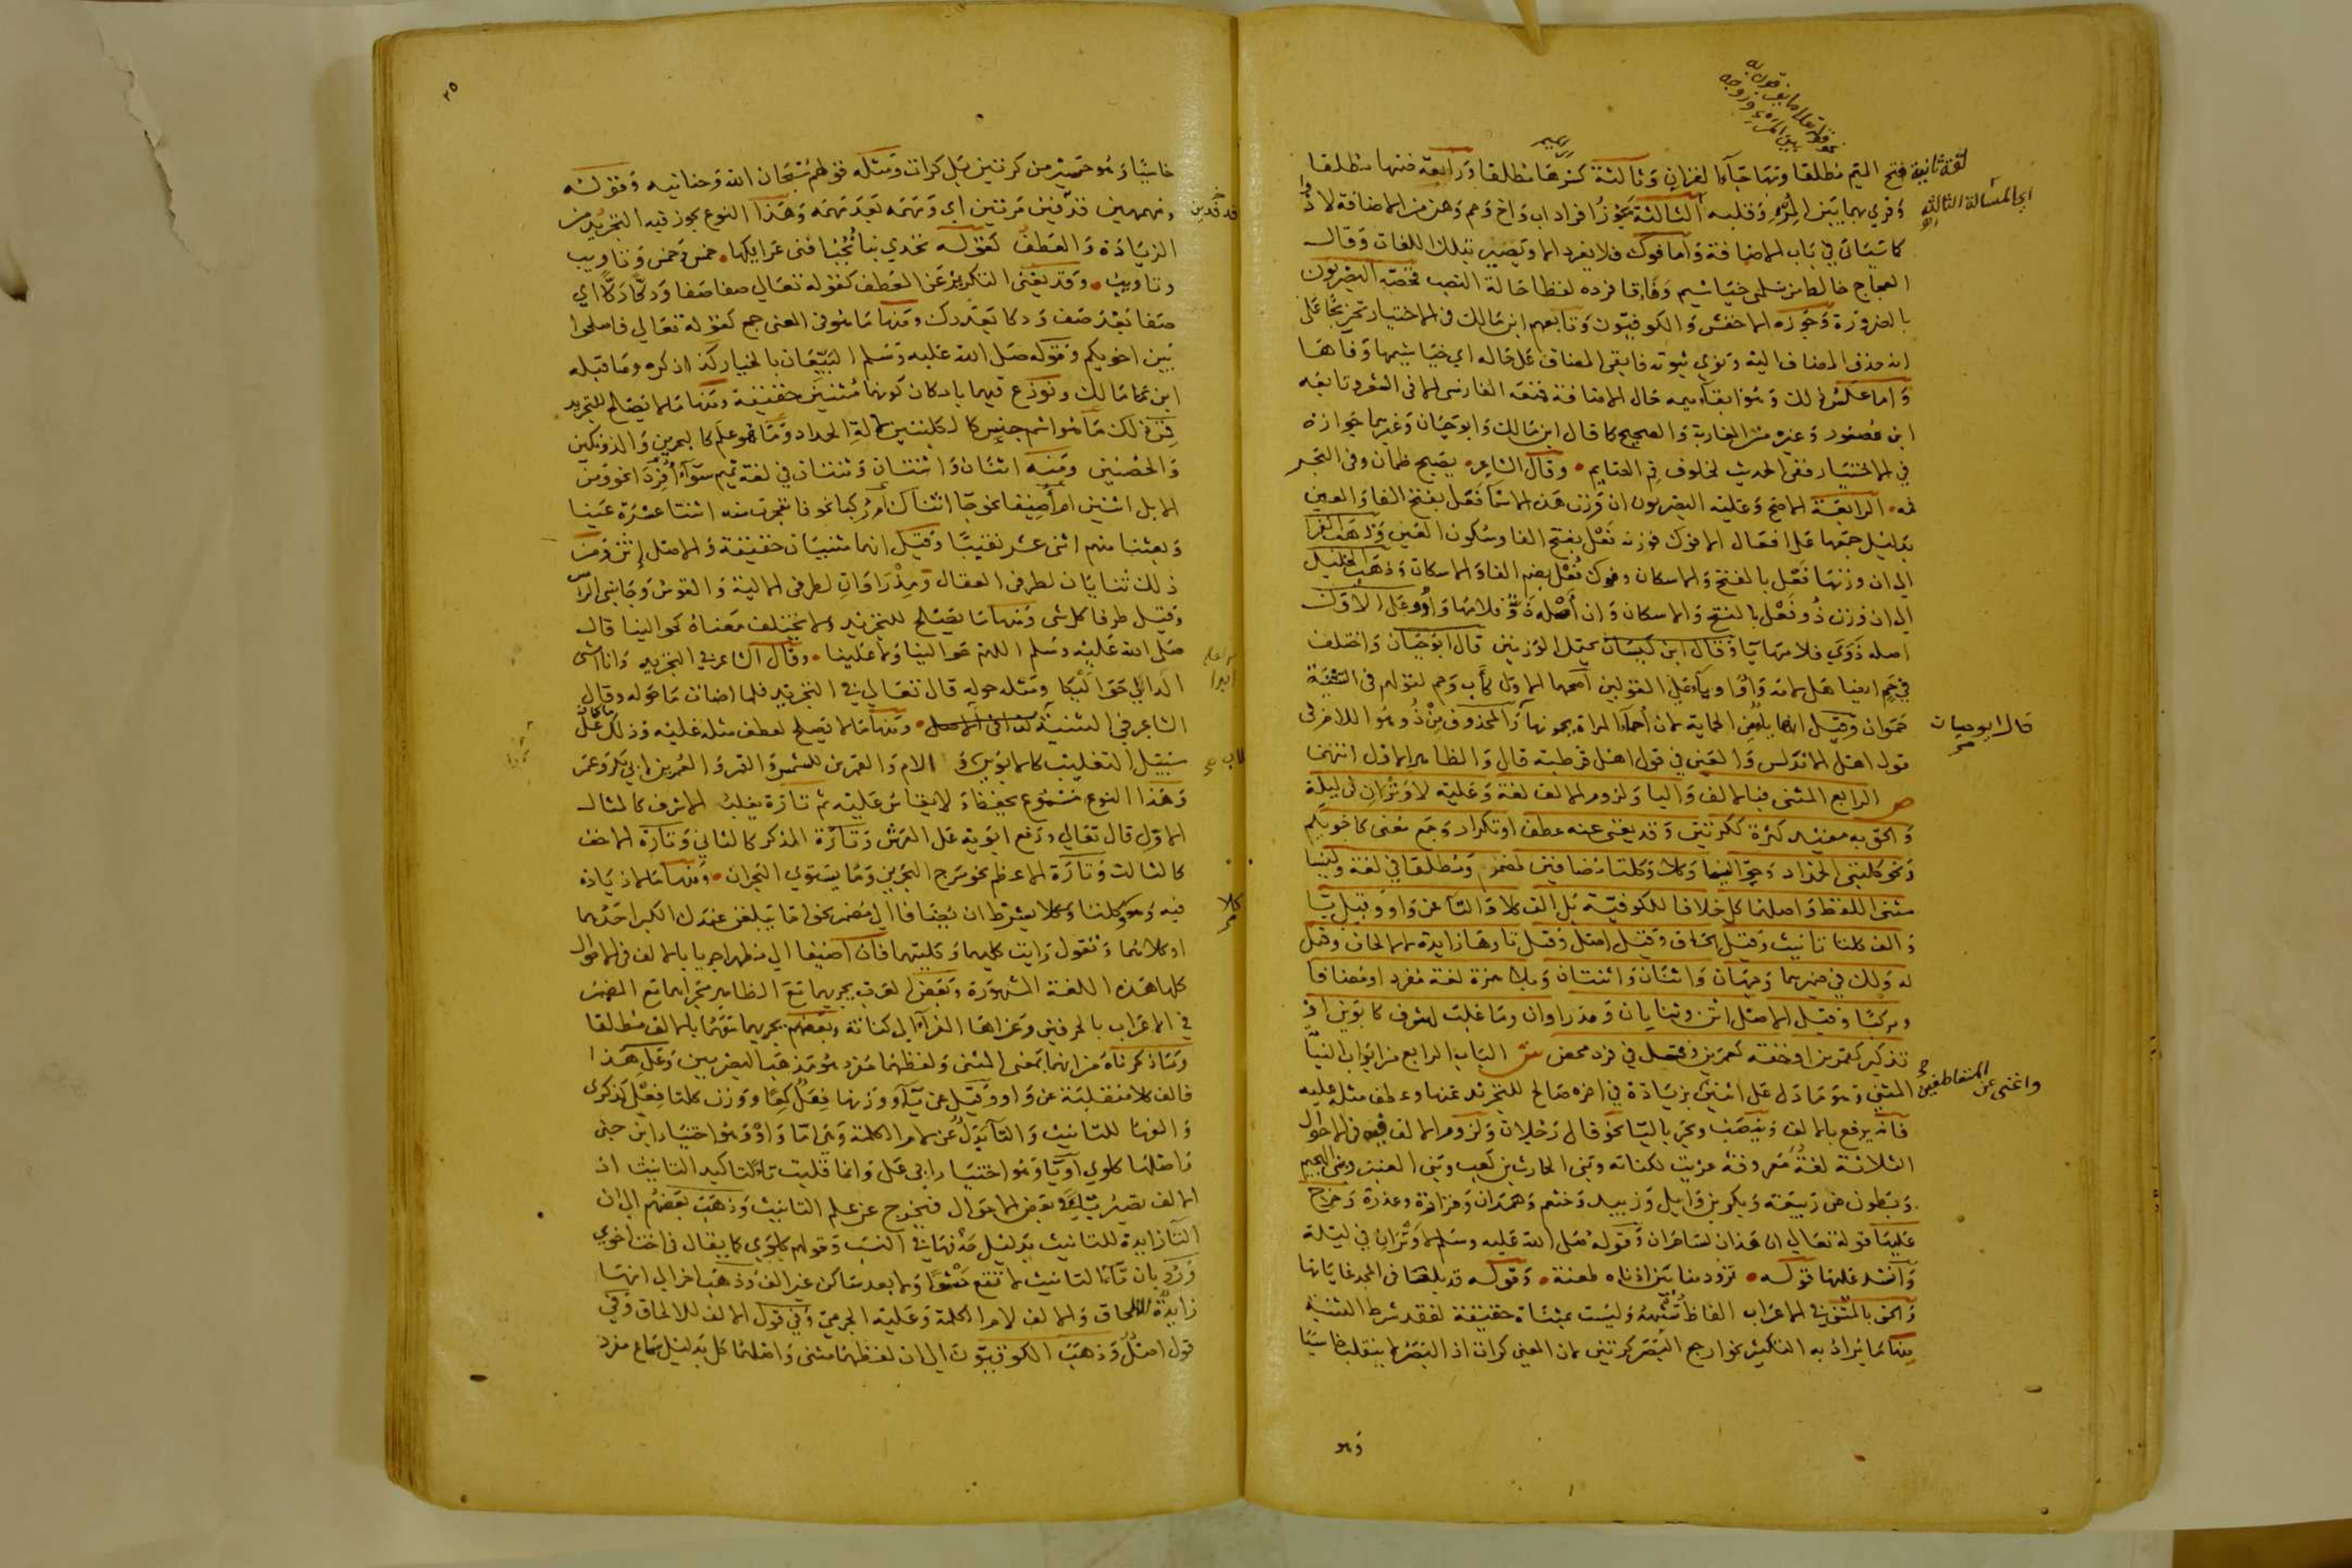 فتح الميم مطلقا وبها جاء القران وثالثة كسرها مطلقا ورابعة
وقري بهما بين المرء وقلبه الثالثة يجوز افراد اب واخ وحم وهن من الاضافة
كما سياتي في باب الاضافة واما فوك فلا يفرد الا ويصير بتلك اللغات وقال
العجاج خالط من سلمى خياشيم وفا فافرده لفظا حالة النصب فخصه البصريون
بالضرورة وجوزه الاخفش والكوفيون وتابعهم ابن مالك في الاختيار تخريجا على
انه حذف المضاف اليه ونوي ثبوته فابقى المضاف على حاله اي خياشيمها وفاها
واما عكس ذلك وهو ابقاء ميمه حال الاضافة فمنعه الفارسي الا في الشعر وتابعه
ابن عصفور وغيره من المغاربة والصحيح كما قال ابن مالك وابو حيان وغيرهما جوازه
في الاختيار ففي الحديث لخلوف فم الصايم وقال الشاعر يصبح ظمان وفي البحر
فمه الرابعة الاصح وعليه البصريون ان وزن هذه الاسما فعل بفتح الفا والعين
بدليل جمعها على افعال الا فوك فوزنه فعل بفتح الفا وسكون العين وذهب الفرا
الى ان وزنها فعل بالفتح والاسكان وفوك فعل بضم الفا والاسكان وذهب الخليل
الى ان وزن ذو فعل بالفتح والاسكان وان اصله ذوو فلامها واو وعلى الاول
اصله ذوي فلامها يا وقال ابن كيسان يحتمل الوزنين قال ابو حيان واختلف
في حم ايضا هل لامه واو او ياء على القولين اصحهما الاول كاب وحم لقولهم في التثنية
حموان وقيل
قول اهل الاندلس قال والظاهر الاول انتهى
ص الرابع المثنى فبالالف واليا ولزوم الالف لغة وعليه لا وتران في ليلة
والحق به مفيد كثرة ككرتين وقد يغني عنه عطف او تكرار وجمع معنى كاخويكم
ونحو كلبتي الحداد وحوالينا وكلا وكلتا مضافين لمضمر ومطلقا في لغة وليسا
مثنى اللفظ واصلهما كل خلافا للكوفية بل الف كلا والتا عن واو وقيل يا
والف كلتا تانيث وقيل الحاق وقيل اصل وقيل تاوها زايدة لالحاق وقيل
واثنان واثنتان وبلا همزة لغة مفرد او مضافا
ومركبا وقيل الاصل اثن وثنايان ومذروان وما غلب لشرف كابوين او
تذكير كقمرين او خفة كعمرين في فرد محض ش الباب الرابع من ابواب النيابة
المثنى وهو ما دل على اثنين بزيادة في اخره صالح للتجريد عنها وعطف مثله عليه
فانه يرفع بالالف وينصب ويجر باليا نحو قال رجلان ولزوم الالف في الاحوال
الثلاثة لغة معروفة عزيت لكنانة وبني الحارث بن كعب وبني العنبر وبني الهجيم
وبطون من ربيعة وبكر بن وايل وزبيد وخثعم وهمدان وفزارة وعذرة وخرج
عليها قوله تعالى ان هذان لساحران وقوله صلى الله عليه وسلم لا وتران في ليلة
وانشد عليها قوله تزود منا بين اذناه طعنة وقوله قد بلغا في المجد غايتاها
والحق بالمثنى في الاعراب الفاظ تشبهه وليست بمثناة حقيقة لفقد شرط التثنية
منها ما يراد به التكثير نحو ارجع البصر كرتين لان المعنى كرات اذ البصر لا ينقلب خاسيا
وهو
لغة ثانية
اي المسالة الثالثة
قال ابو حيان
واغنى عن المتعاطفين
٢٥
خاسيا وهو حسير من كرتين بل كرات ومثله قولهم سبحان الله وحنانيه وقوله
ومهمهين قذفين مرتين اي ومهمه بعد مهمه وهذا النوع يجوز فيه التجريد من
الزيادة والعطف كقوله تخدي بنا نجبا افنى عرايكها خمس وخمس وتاويب
وتاويب وقد يغني التكرير عن العطف كقوله تعالى صفا صفا ودكا دكا اي
صفا بعد صف ودكا بعد دك ومنها ما هو في المعنى جمع كقوله تعالى فاصلحوا
بين اخويكم وقوله صلى الله عليه وسلم البيعان بالخيار كذا ذكره وما قبله
ابن مالك ونوزع فيهما بامكان كونهما مثنيين حقيقة ومنها ما لا يصلح للتجريد
فمن ذلك ما هو اسم جنس كالكلبتين لالة الحداد وما هو علم كالبحرين والدونكين
والحصنين ومنه اثنان واثنتان وثنتان في لغة تميم سواء افردا نحو ومن
الابل اثنين ام اضيفا نحو جا اثناك ام ركبا نحو فانفجرت منه اثنتا عشرة عينا
وبعثنا منهم اثني عشر نقيبا وقيل انهما مثنيان حقيقة والاصل اثن ومن
ذلك ثنايان لطرفي العقال ومذروان لطرفي الالية والقوس وجانبي الراس
وقيل طرفا كل شي ومنها ما يصلح للتجريد ولا يختلف معناه كحوالينا قال
صلى الله عليه وسلم اللهم حوالينا ولا علينا وقال الشاعر في التجريد وانا امشى
الدالى حوالكا ومثله حوله قال تعالى في التجريد فلما اضات ما حوله وقال
الشاعر في التثنية ومنها ما لا يصلح لعطف مثله عليه وذلك ما كان على
سبيل التغليب كالابوين والام والقمرين للشمس والقمر والعمرين لابي بكر وعمر
وهذا النوع مسموع يحفظ ولا يقاس عليه ثم تارة يغلب الاشرف كالمثال
الاول قال تعالى ورفع ابويه على العرش وتارة المذكر كالثاني وتارة الاخف
كالثالث وتارة الاعظم نحو مرج البحرين وما يستوي البحران ومنها ما لا زيادة
فيه وهو كلتا وكلا بشرط ان يضافا الى مضمر نحو اما يبلغن عندك الكبر احدهما
او كلاهما وتقول رايت كليهما وكلتيهما فان اضيفا الى مظهر اجريا بالالف في الاحوال
كلها هذه اللغة المشهورة وبعض العرب يجريهما مع الظاهر مجراهما مع المضمر
في الاعراب بالحرفين وعزاها الفراء الى كنانة وبعضهم يجريهما معهما بالالف مطلقا
وما ذكرناه من انهما بمعنى المثنى ولفظهما مفرد هو مذهب البصريين وعلى هذا
فالف كلا منقلبة عن واو وقيل عن ياء ووزنها فعل كمعا ووزن كلتا فعلى كذكرى
والفها للتانيث والتا بدل عن لام الكلمة وهي اما واو وهو اختيار ابن جني
واصلها كلوى او يا وهو اختيار ابي علي وانما قلبت تا لتاكيد التانيث اذ
الالف تصير ياء في بعض الاحوال فتخرج عن علم التانيث وذهب بعضهم الى ان
التا زايدة للتانيث بدليل حذفها في النسب وقولهم كلوي كما يقال في اخت اخوي
ورد بان تا التانيث لا تقع حشوا ولا بعد ساكن غير الف وذهب اخر الى انها
زايدة للالحاق والالف لام الكلمة وعليه الجرمي وفي قول الالف للالحاق وفي
قول اصل وذهب الكوفيون الى ان لفظهما مثنى واصلهما كل بدليل سماع مفرد
كلا